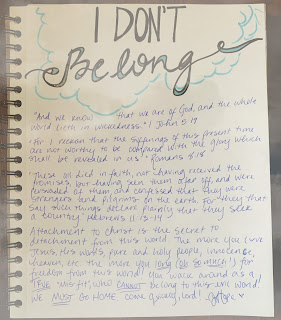 I DON'T
Belong
"And we know that we are of God, and the whole
world lieth in wickedness." 1 John 5:19
"For I reckon that the sufferings of this present time
are not worthy to be compared with the glory which
shall be revealed in us" Romans 8:18
"These all died in faith, not having received the
promises, but having seen them afar off, and were
persuaded of them and confessed that they were
strangers and pilgrims on the earth. For they that
say such things declare plainly that they seek
a country" Hebrews 11:13-14
Attachment to Christ is the secret to
detachment from this world. The more you love
Jesus, His words, pure and holy people, innocence,
heaven, etc the more you long (oh so much!) for
freedom from this world! You walk around as a
misfit, who CANNOT belong to this evil world.
WE MUST GO HOME. Come quickly, Lord!